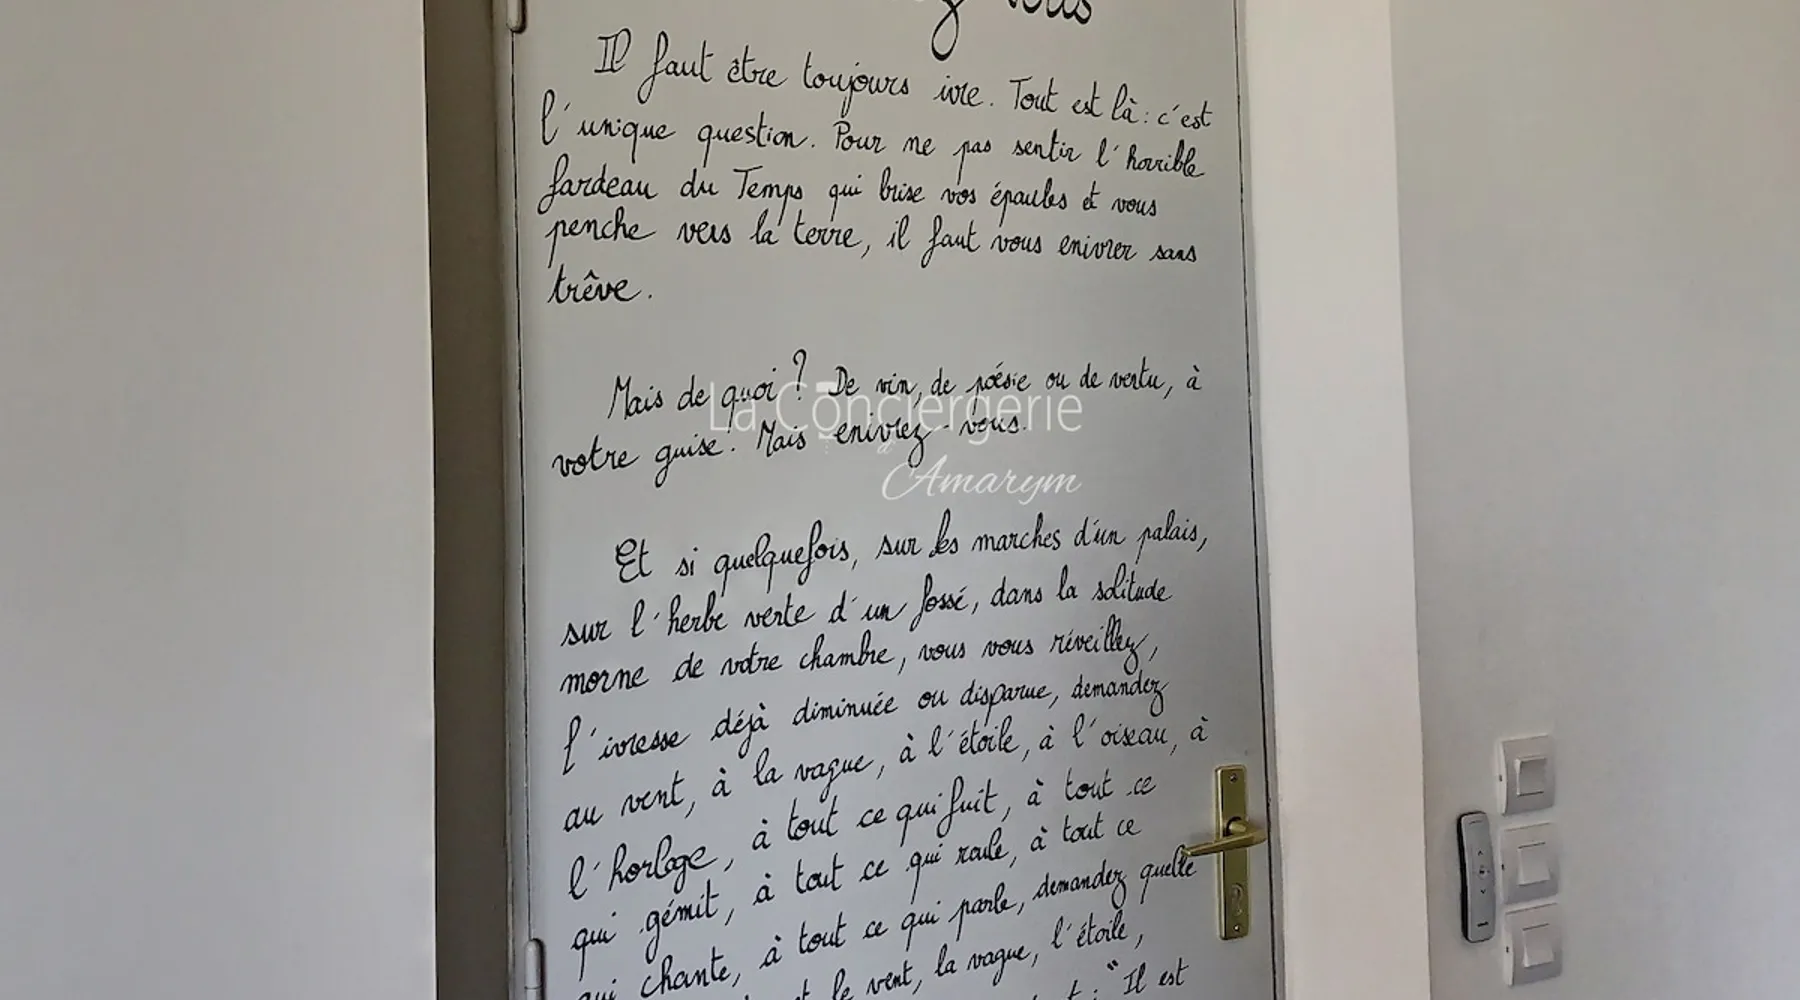 vous
Il faut être toujours ivre. Tout est là : c'est
l'unique question. Pour ne pas sentir l'horrible
fardeau du Temps qui brise vos épaules et vous
penche vers la terre, il faut vous enivrer sans
trêve.
Mais de quoi ? De vin, de poésie ou de vertu, à
votre guise. Mais enivrez-vous.
La Conciergerie
d'Amarym
Et si quelquefois, sur les marches d'un palais,
sur l'herbe verte d'un fossé, dans la solitude
morne de votre chambre, vous vous réveillez,
l'ivresse déjà diminuée ou disparue, demandez
au vent, à la vague, à l'étoile, à l'oiseau, à
l'horloge, à tout ce qui fuit, à tout ce
qui gémit, à tout ce qui roule, à tout ce
qui chante, à tout ce qui parle, demandez quelle
le vent, la vague, l'étoile,
"Il est